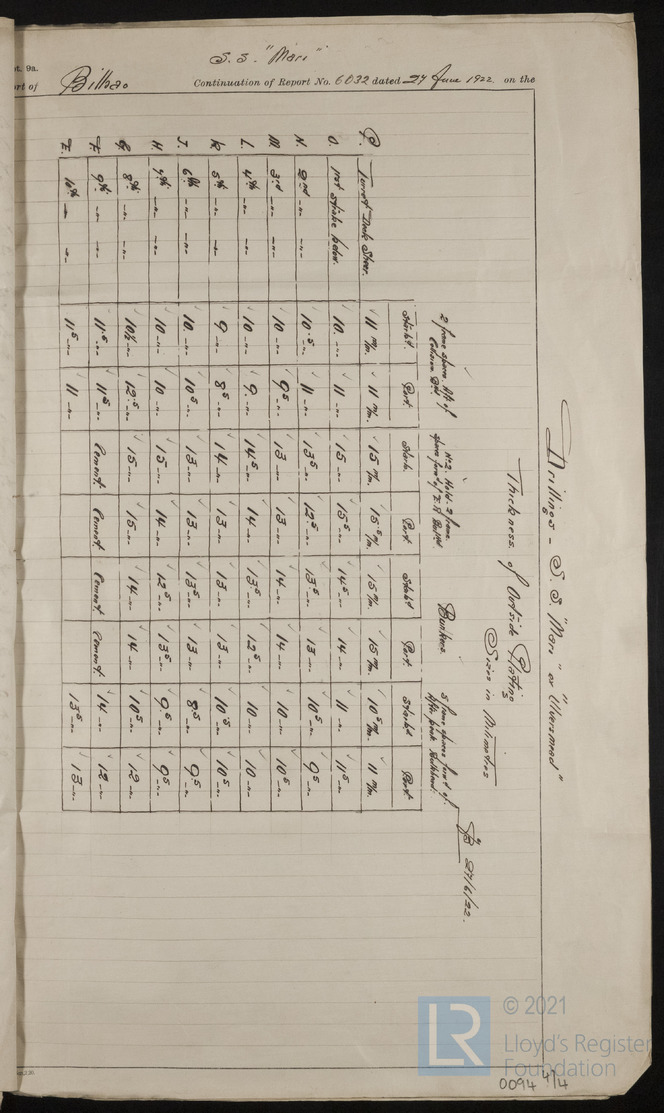 S.S. "Mari"
Bilbao
Continuation of Report No. 6032 dated 27 June 1922. on the
Drillings - S.S. "Mari" ex "Ulversmead"
Thickness of Outside Plating
Sizes in Milimetres
27/6/22.
2 frame spaces Aft of
No 2. Hold. 2 frame
Bunkers.
5 frame spaces forwd of
After peak Bulkhead.
Starbd. Port. Starb. Port Starbd Port. Starbd Port.
P. Turret Deck Strar. 11 m/m. 11 m/m. 15 m/m. 15.5 m/m. 15 m/m. 15 m/m. 10.5 m/m. 11 m/m.
O. 1st Strake below. 10. -"- 11 -"- 15 -"- 15.5 -"- 14.5 -"- 14 -"- 11 -"- 11.5 -"-
N. 2nd -"- -"- 10.5 -"- 11 -"- 13.5 -"- 12.5 -"- 13.5 -"- 13 -"- 10.5 -"- 9.5 -"-
M. 3rd -"- -"- 10 -"- 9.5 -"- 13 -"- 13 -"- 14 -"- 14 -"- 10 -"- 10.5 -"-
L. 4th -"- -"- 10 -"- 9. -"- 14.5 -"- 14 -"- 13.5 -"- 12.5 -"- 10 -"- 10 -"-
K. 5th -"- -"- 9 -"- 8.5 -"- 14 -"- 13 -"- 13 -"- 13 -"- 10.5 -"- 10.5 -"-
J. 6th -"- -"- 10. -"- 10.5 -"- 13 -"- 13 -"- 13.5 -"- 13 -"- 8.5 -"- 9.5 -"-
H. 7th -"- -"- 10 -"- 10 -"- 15 -"- 14 -"- 12.5 -"- 13.5 -"- 9.5 -"- 9.5 -"-
G. 8th -"- -"- 10½ -"- 12.5 -"- 15 -"- 15 -"- 14 -"- 14 -"- 10.5 -"- 12 -"-
F. 9th -"- -"- 11.5 -"- 11.5 -"- Cement. Cement. Cement. Cement. 14 -"- 12 -"-
E. 10th -"- -"- 11.5 -"- 11 -"- 13.5 -"- 13 -"-
LR
© 2021
Lloyd's Register
Foundation
0094 4/4